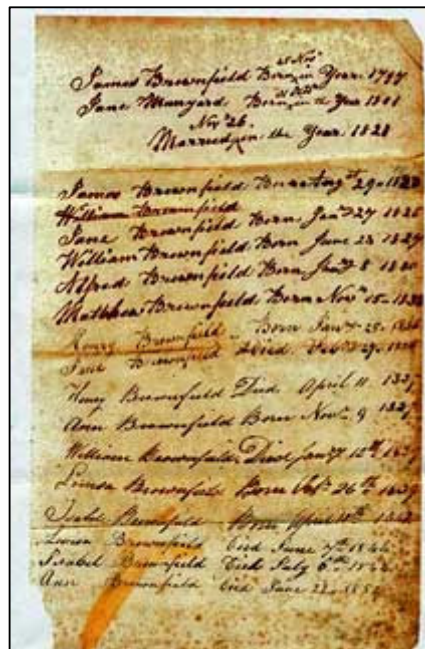 James Brownfield Born in Year 1797
Jane Born in the Year 1801
Novr 26
Married in the Year 1821
James Brownfield Born Augt 29
William Brownfield
Jane Brownfield Born Jany 27 1825
William Brownfield Born June 23 1827
Alfred Brownfield Born Jany 8 1830
Matthew Brownfield Born Novr 15
Henry Brownfield Born Jany 25
Jane Brownfield Died 29
Henry Brownfield Died April 11 1837
Ann Brownfield Born Novr 9 1837
William Brownfield Died Jany 12th
Louisa Brownfield Born 26th
Isabel Brownfield Born April 10th
Louisa Brownfield Died June 7th 1844
Isabel Brownfield Died July 6th
Ann Brownfield Died June 1854